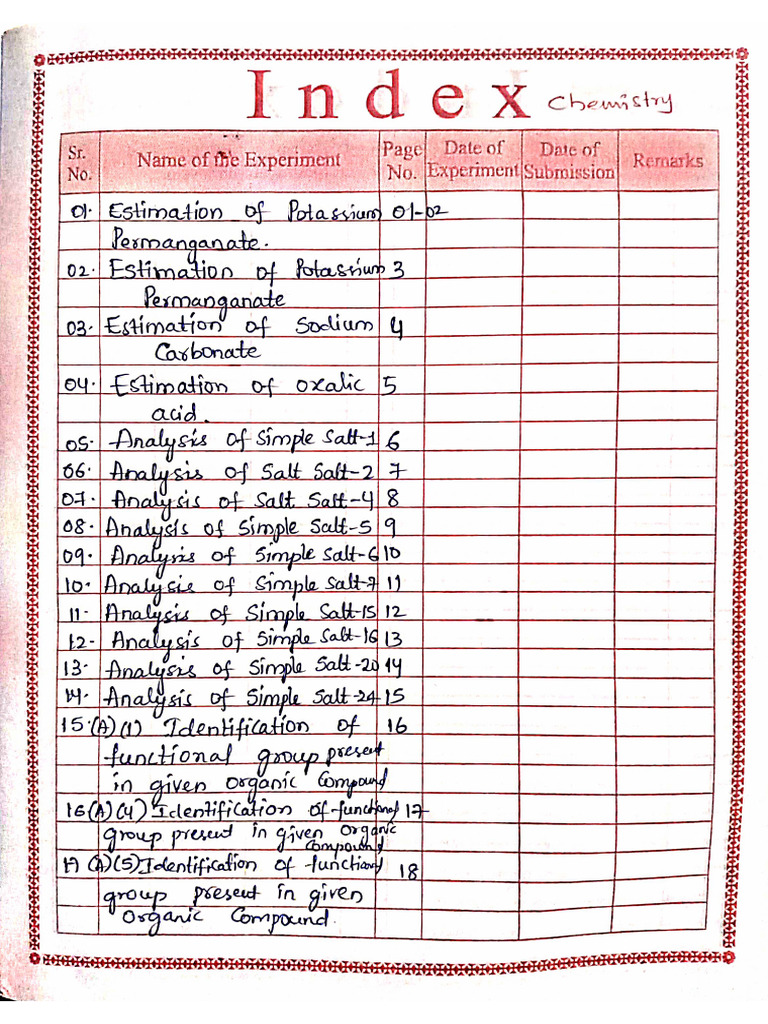 Index Chemistry
Sr. No. Name of the Experiment Page No. Date of Experiment Date of Submission Remarks
01. Estimation of Potassium 01-02
Permanganate.
02. Estimation of Potassium 3
Permanganate
03. Estimation of Sodium 4
Carbonate
04. Estimation of oxalic 5
acid.
05. Analysis of Simple Salt-1 6
06. Analysis of Salt Salt-2 7
07. Analysis of Salt Salt-4 8
08. Analysis of Simple Salt-5 9
09. Analysis of Simple Salt-6 10
10. Analysis of Simple Salt-7 11
11- Analysis of Simple Salt-15 12
12- Analysis of Simple Salt-16 13
13- Analysis of Simple Salt-20 14
14. Analysis of Simple Salt-24 15
15.(A)(1) Identification of 16
functional group present
in given organic Compound
16(A)(4) Identification of functional 17
group present in given organic
Compound
17(A)(5) Identification of functional 18
group present in given
organic Compound.